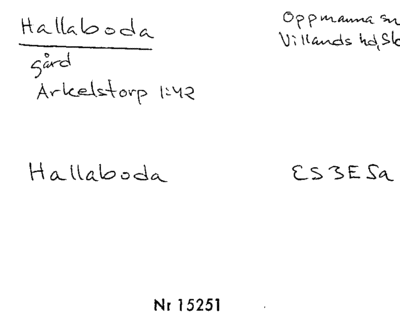 Hallaboda
Oppmanna sn
Villands hd, Sk
gård
Arkelstorp 1:42
Hallaboda
E3BESa
Nr 15251